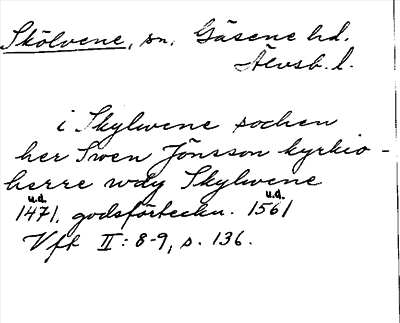 Skölvene, sn. Gäsene hd.
Älvsb. l.
i Skylwene sochen
her Swen Jönsson kyrkio-
herre wdy Skylwene
u.d. u.d.
1471, godsförteckn. 1561
Vfk II: 8-9, s. 136.